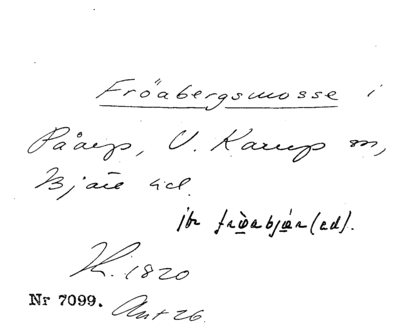 Fröabergsmosse i
Påarp, V. Karup sn,
Bjäre hd.
jbr fröabjær (ed).
K. 1820
Nr 7099. Ant 26.